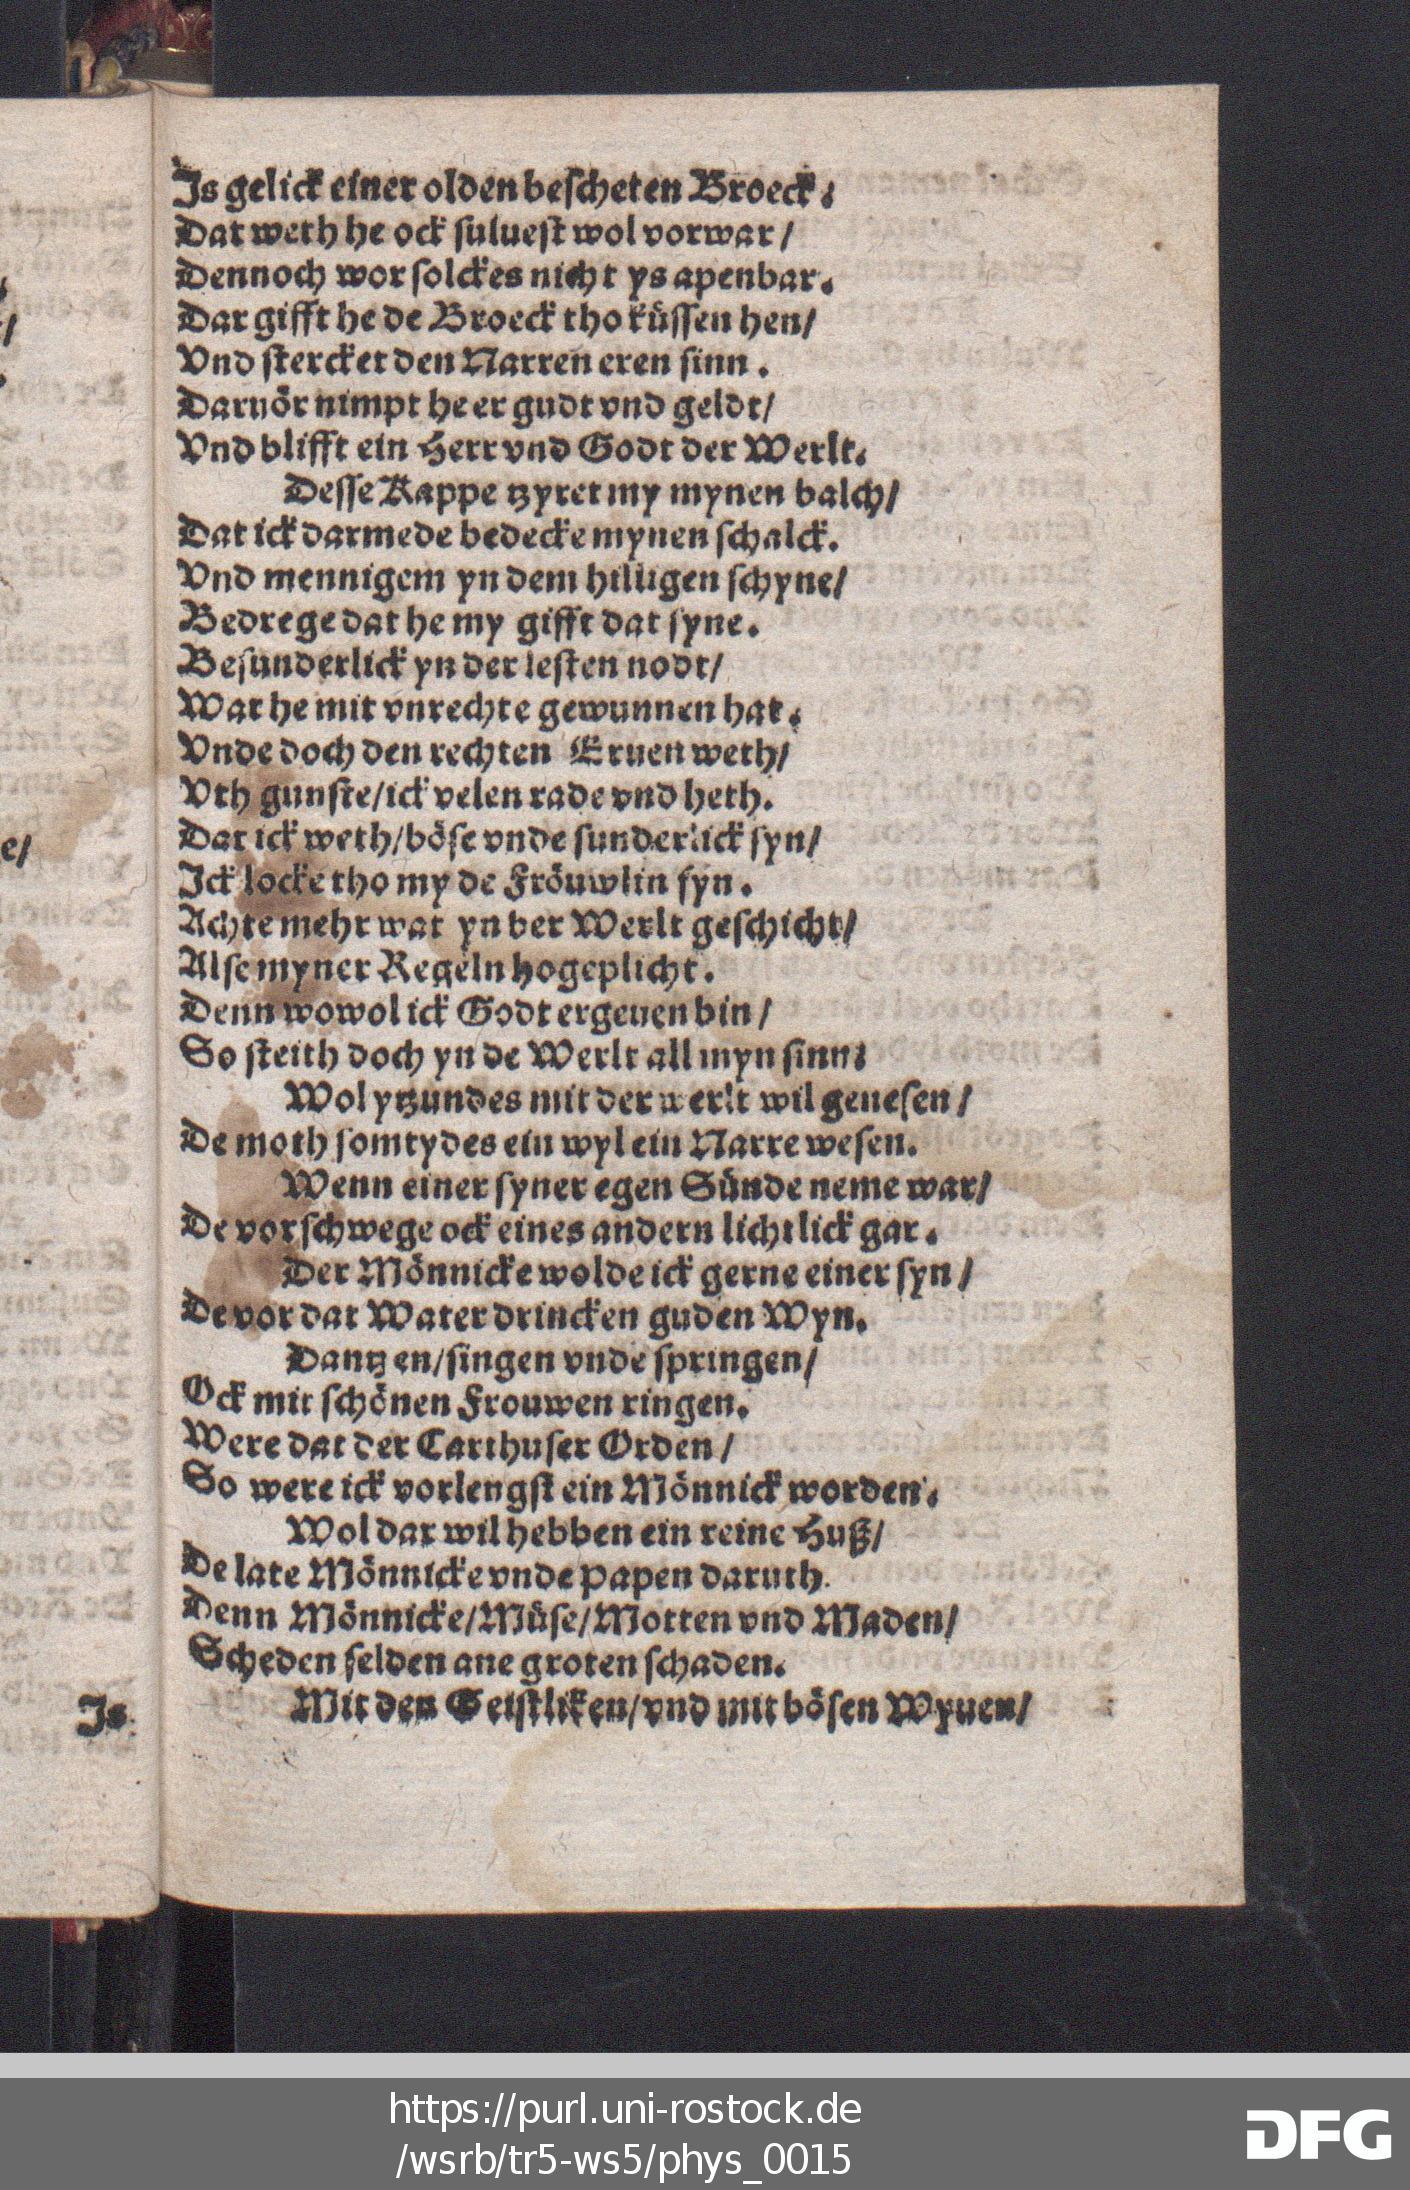 Is gelick einer olden bescheten Broeck.
Dat weth he ock suluest wol vorwar/
Dennoch wor solckes nicht ys apenbar.
Dar gifft he de Broeck tho küssen hen/
Vnd stercket den Narren eren sinn.
Daruör nimpt he er gudt vnd geldt/
Vnd blifft ein Herr vnd Godt der Werlt.
Desse Kappe tzyret my mynen balch/
Dat ick darmede bedecke mynen schalck.
Vnd mennigem yn dem hilligen schyne/
Bedrege dat he my gifft dat syne.
Besunderlick yn der lesten nodt/
Wat he mit vnrechte gewunnen hat.
Vnde doch den rechten Eruen weth/
Vth gunste/ick velen rade vnd heth.
Dat ick weth/böse vnde sunderlick syn/
Ick locke tho my de Fröuwlin fyn.
Achte mehr wat yn der Werlt geschicht/
Alse myner Regeln hogeplicht.
Denn wowol ick Godt ergeuen bin/
So steith doch yn de Werlt all myn sinn.
Wol ytzundes mit der werlt wil genesen/
De moth somtydes ein wyl ein Narre wesen.
Wenn einer syner egen Sünde neme war/
De vorschwege ock eines andern lichtlick gar.
Der Mönnicke wolde ick gerne einer syn/
De vor dat Water drincken guden Wyn.
Dantzen/singen vnde springen/
Ock mit schönen Frouwen ringen.
Were dat der Carthuser Orden/
So were ick vorlengst ein Mönnick worden.
Wol dar wil hebben ein reine Huß/
De late Mönnicke vnde Papen daruth.
Denn Mönnicke/Müse/Motten vnd Maden/
Scheden selden ane groten schaden.
Is
Mit den Geistliken/vnd mit bösen Wyuen/
e/
https://purl.uni-rostock.de
/wsrb/tr5-ws5/phys_0015
DFG